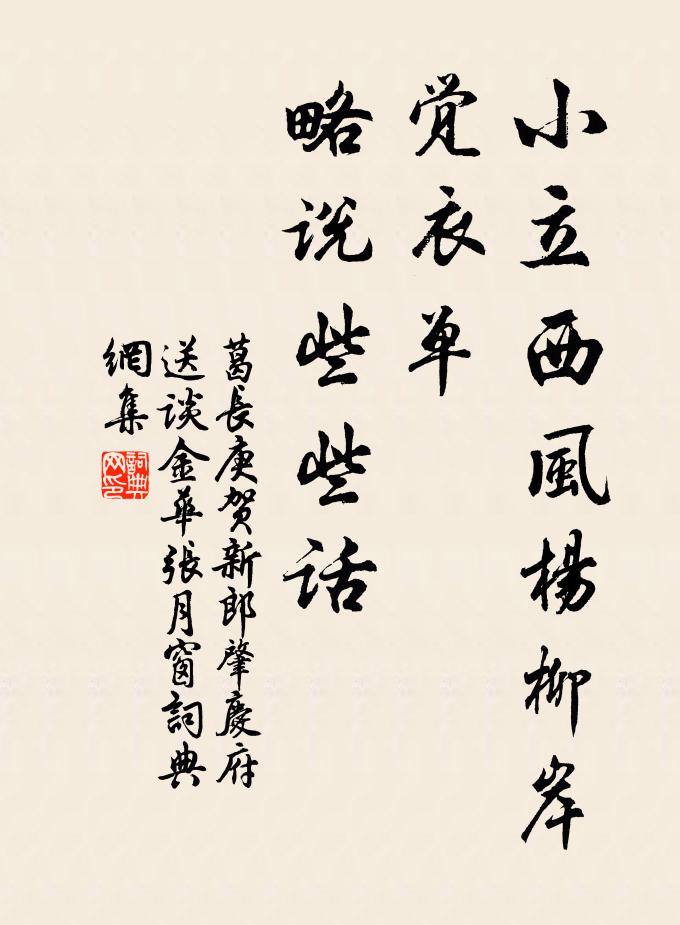 小立西風楊柳岸
觉衣单
略说些些话
葛長庚贺新郎肇慶府
送谈金華張月窗詞典
網集
詞典网印